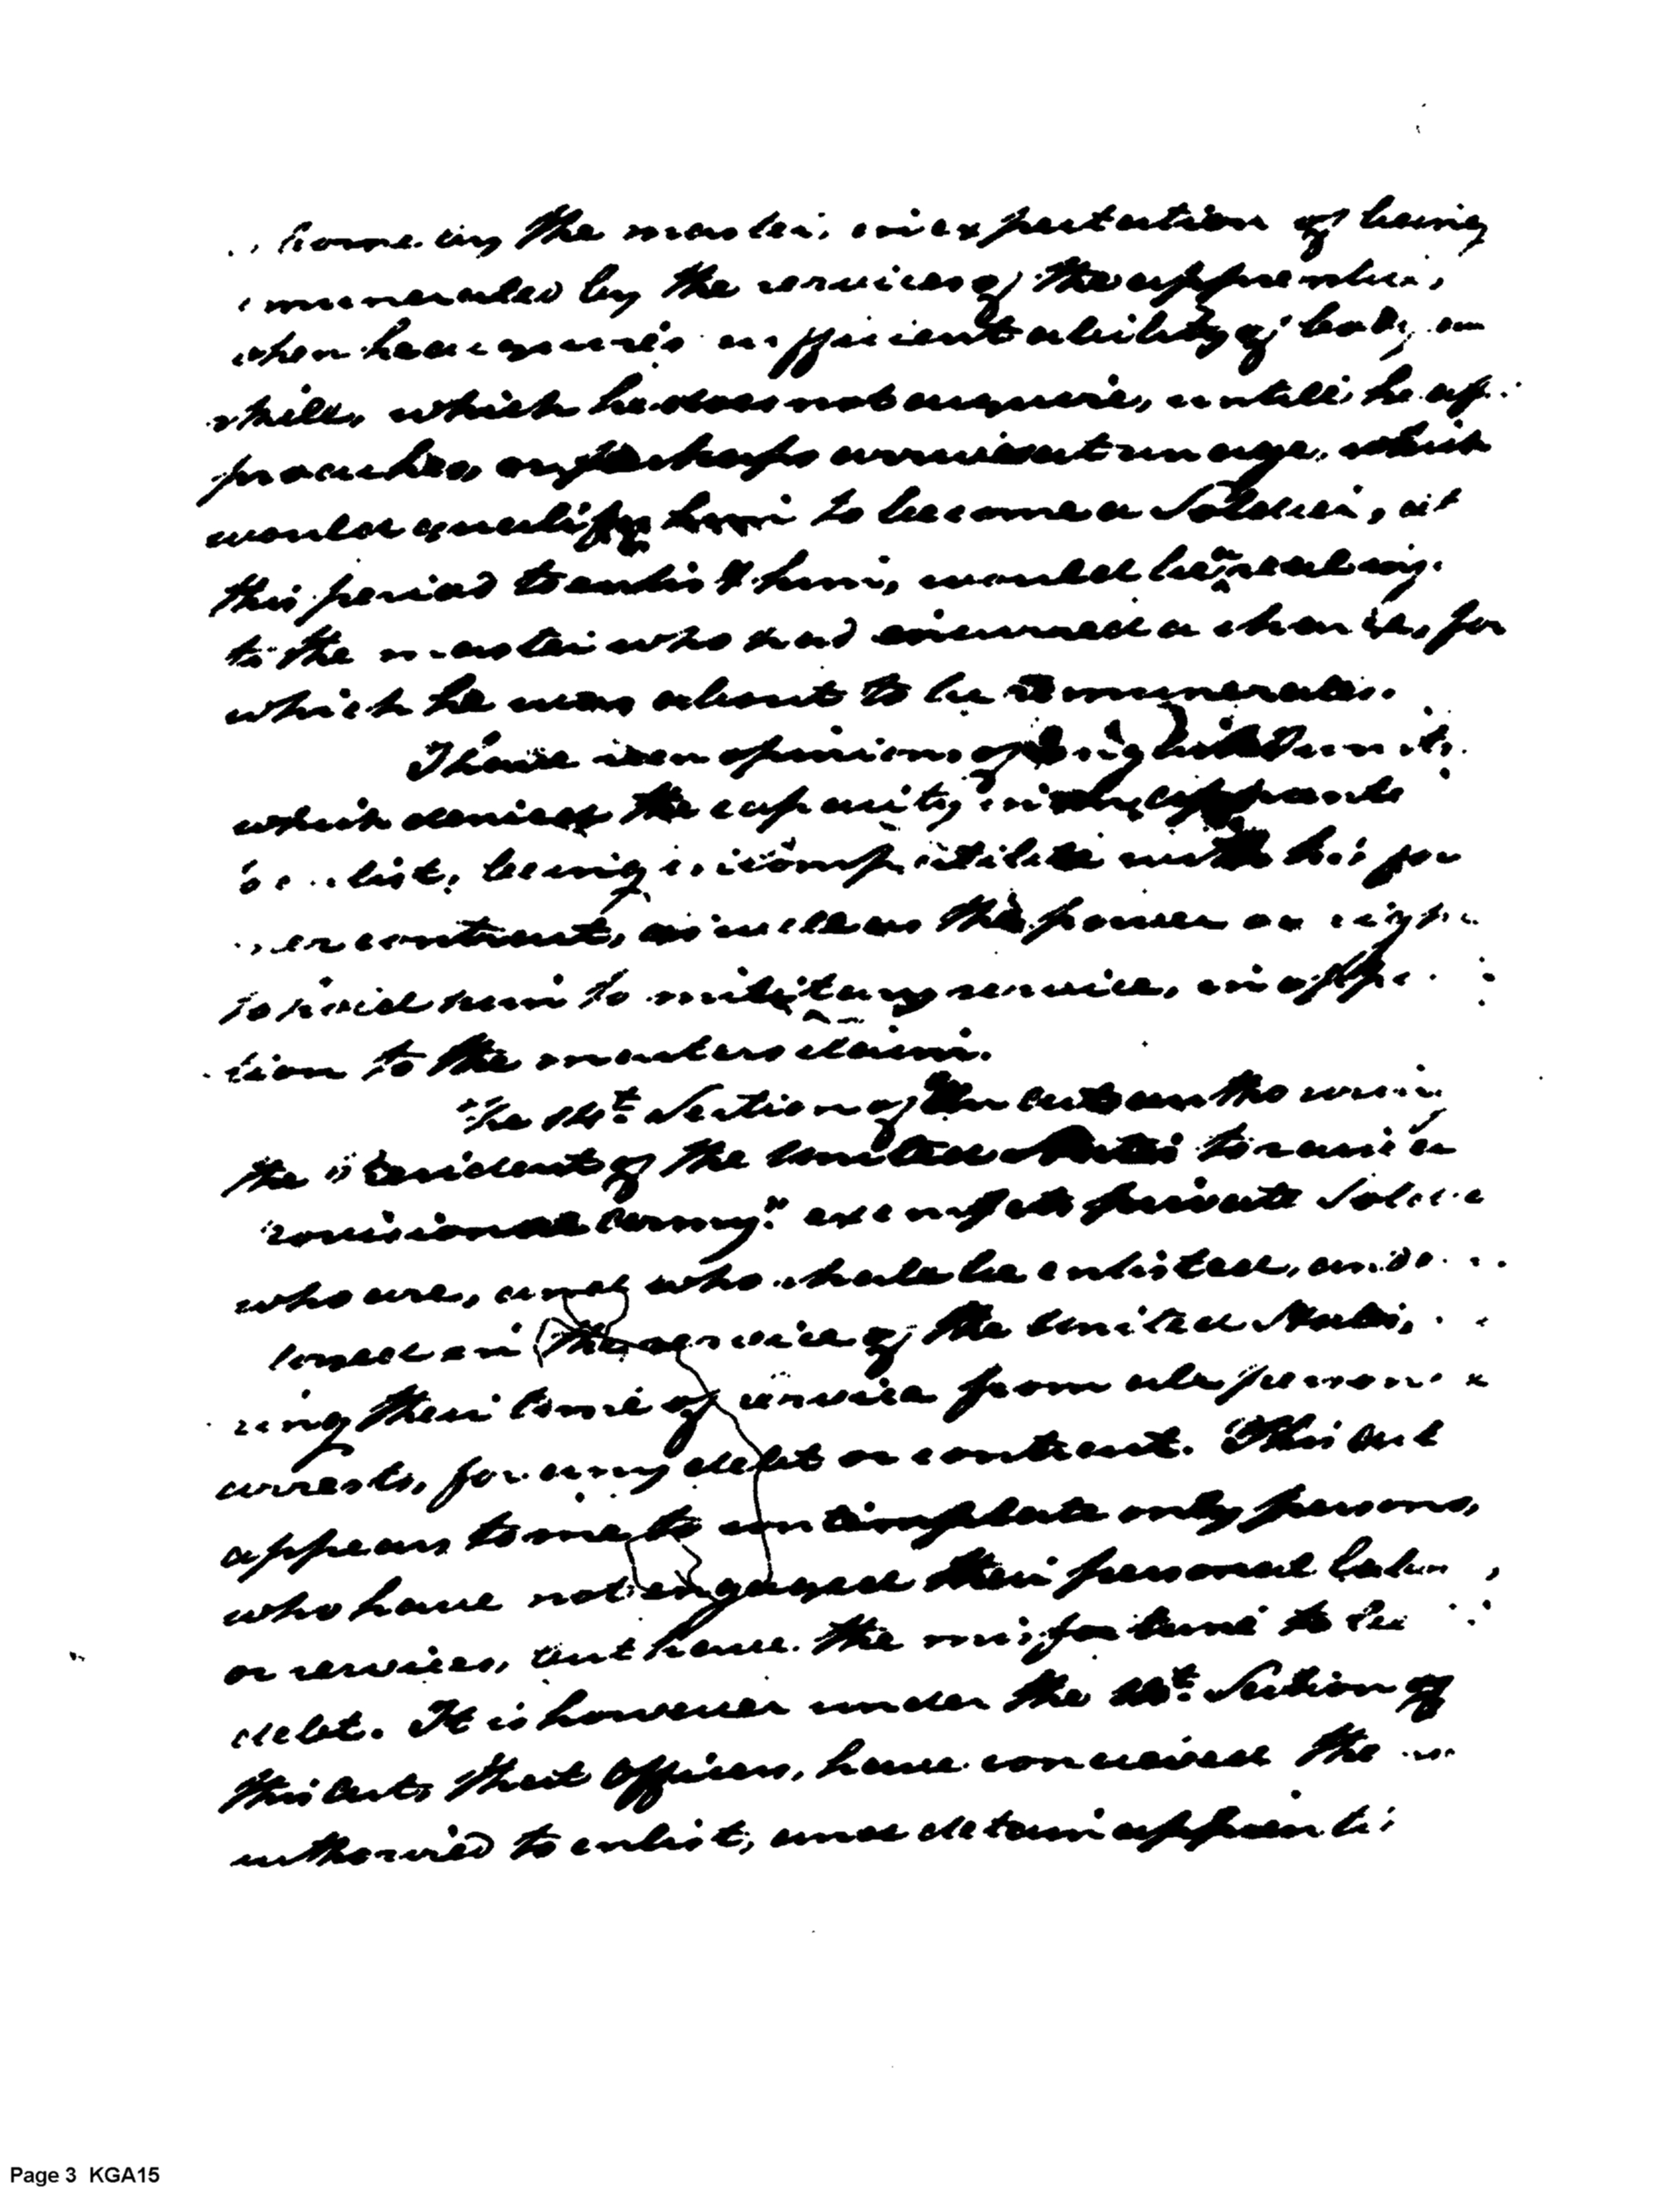 borne by the master, in expectation of being
remunerated by the services of the apprentice,
when he acquires sufficient ability of body, an
skill, which he does not acquire, untill he ap-
proaches, or perhaps arrives at an age, which
would qualify him to become a Soldier, at
this period to enlist him, would be
to the master who had incurred a charge, for
which he was about to be remunerated.
I have seen opinions of
which denies the capacity in the apprentice
list, being incompatible with his for
mer contract, as well as the power or right
to hold him to military service, in oppo
sition to the masters claim.
The 14t. Section of the act authorizing
the "President of the United States to raise a
rovisional army" exempts private Soldie
who are, and who shall be enlisted,
in the service of the United States,
ring their time of service from all personal
arrests, for any debt or contract. This act
appears to me to contemplate only persons,
who have not engaged their personal labour
or services, but have the misfortune to be
debt. It is however under the 14t. Section of
this act, that officers, have conceived the
authorised to enlist, and detain apprentices